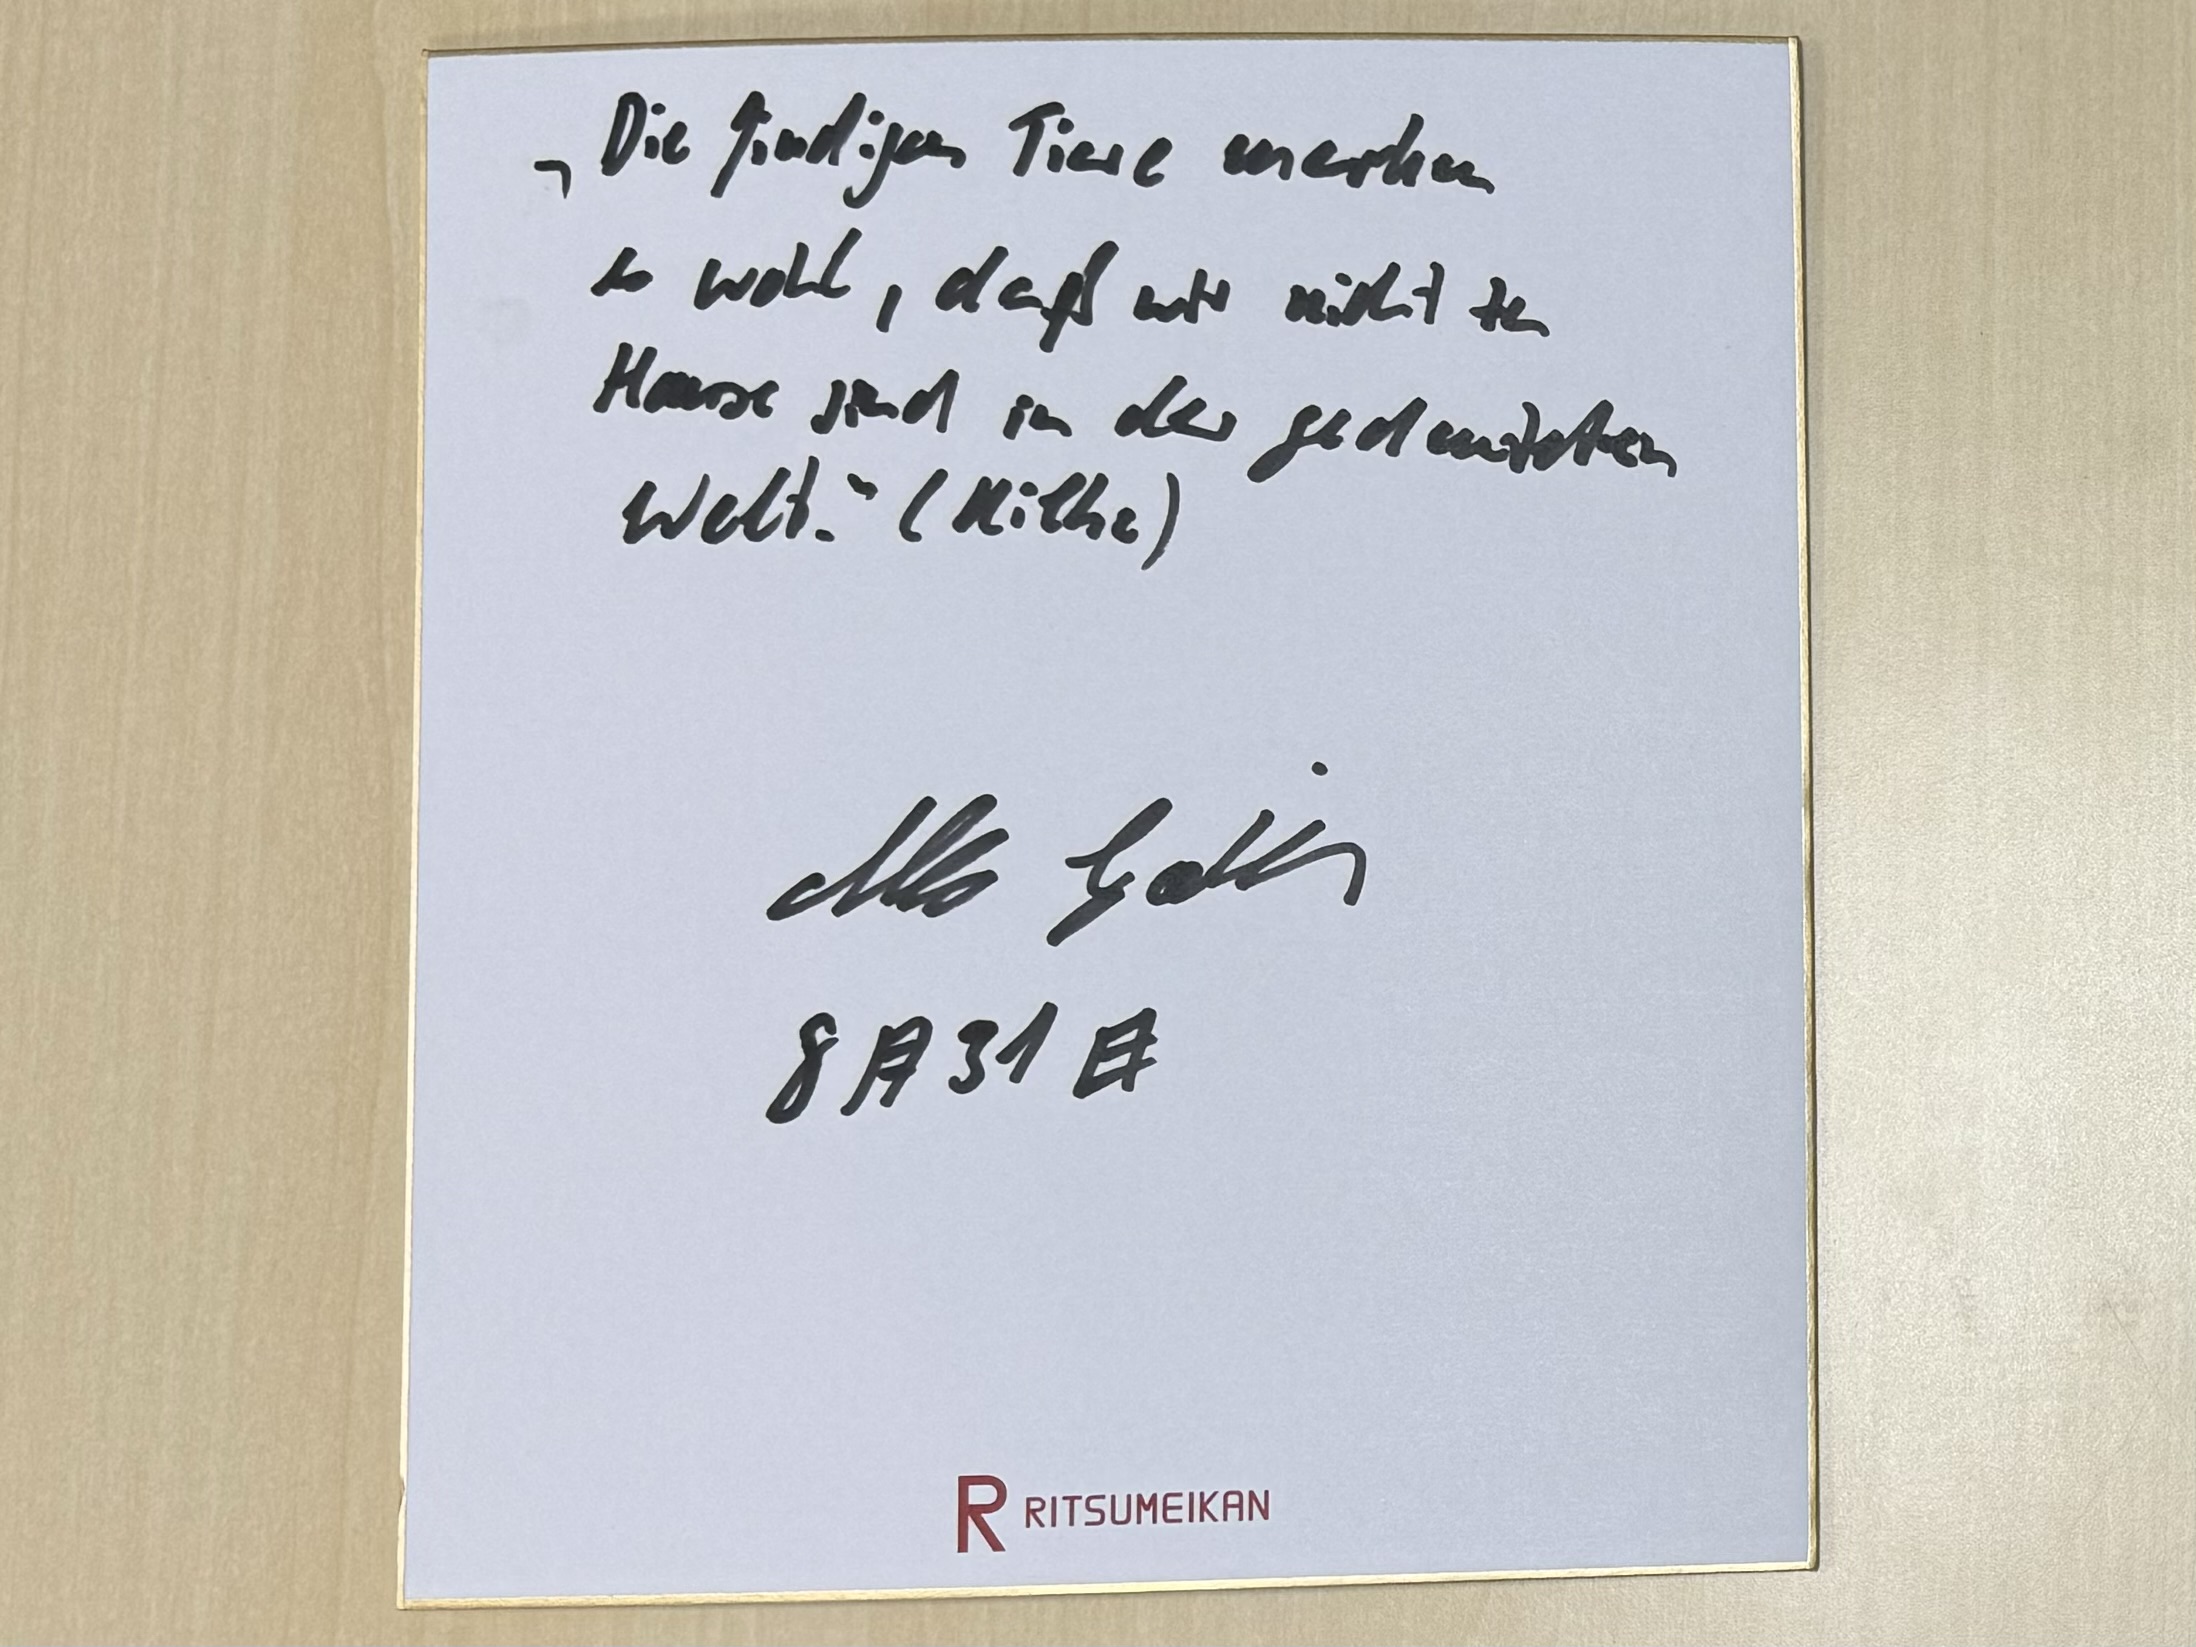 „Die findigen Tiere merken
es wohl, daß wir nicht zu
Hause sind in der gedeuteten
Welt.“ (Rilke)
8月31日
RITSUMEIKAN